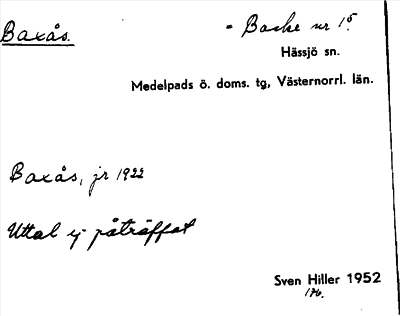 Baxås.
= Backe nr 15.
Hässjö sn.
Medelpads ö. doms. tg, Västernorrl. län.
Baxås, jr 1922
Uttal ej påträffat
Sven Hiller 1952